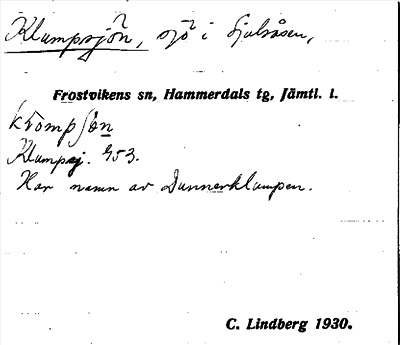 Klumpsjön, sjö i Gjalsåsen,
Frostvikens sn, Hammerdals tg, Jämtl. l.
Klumpsj. 453.
Har namn av Dunnerklumpen.
C. Lindberg 1930.